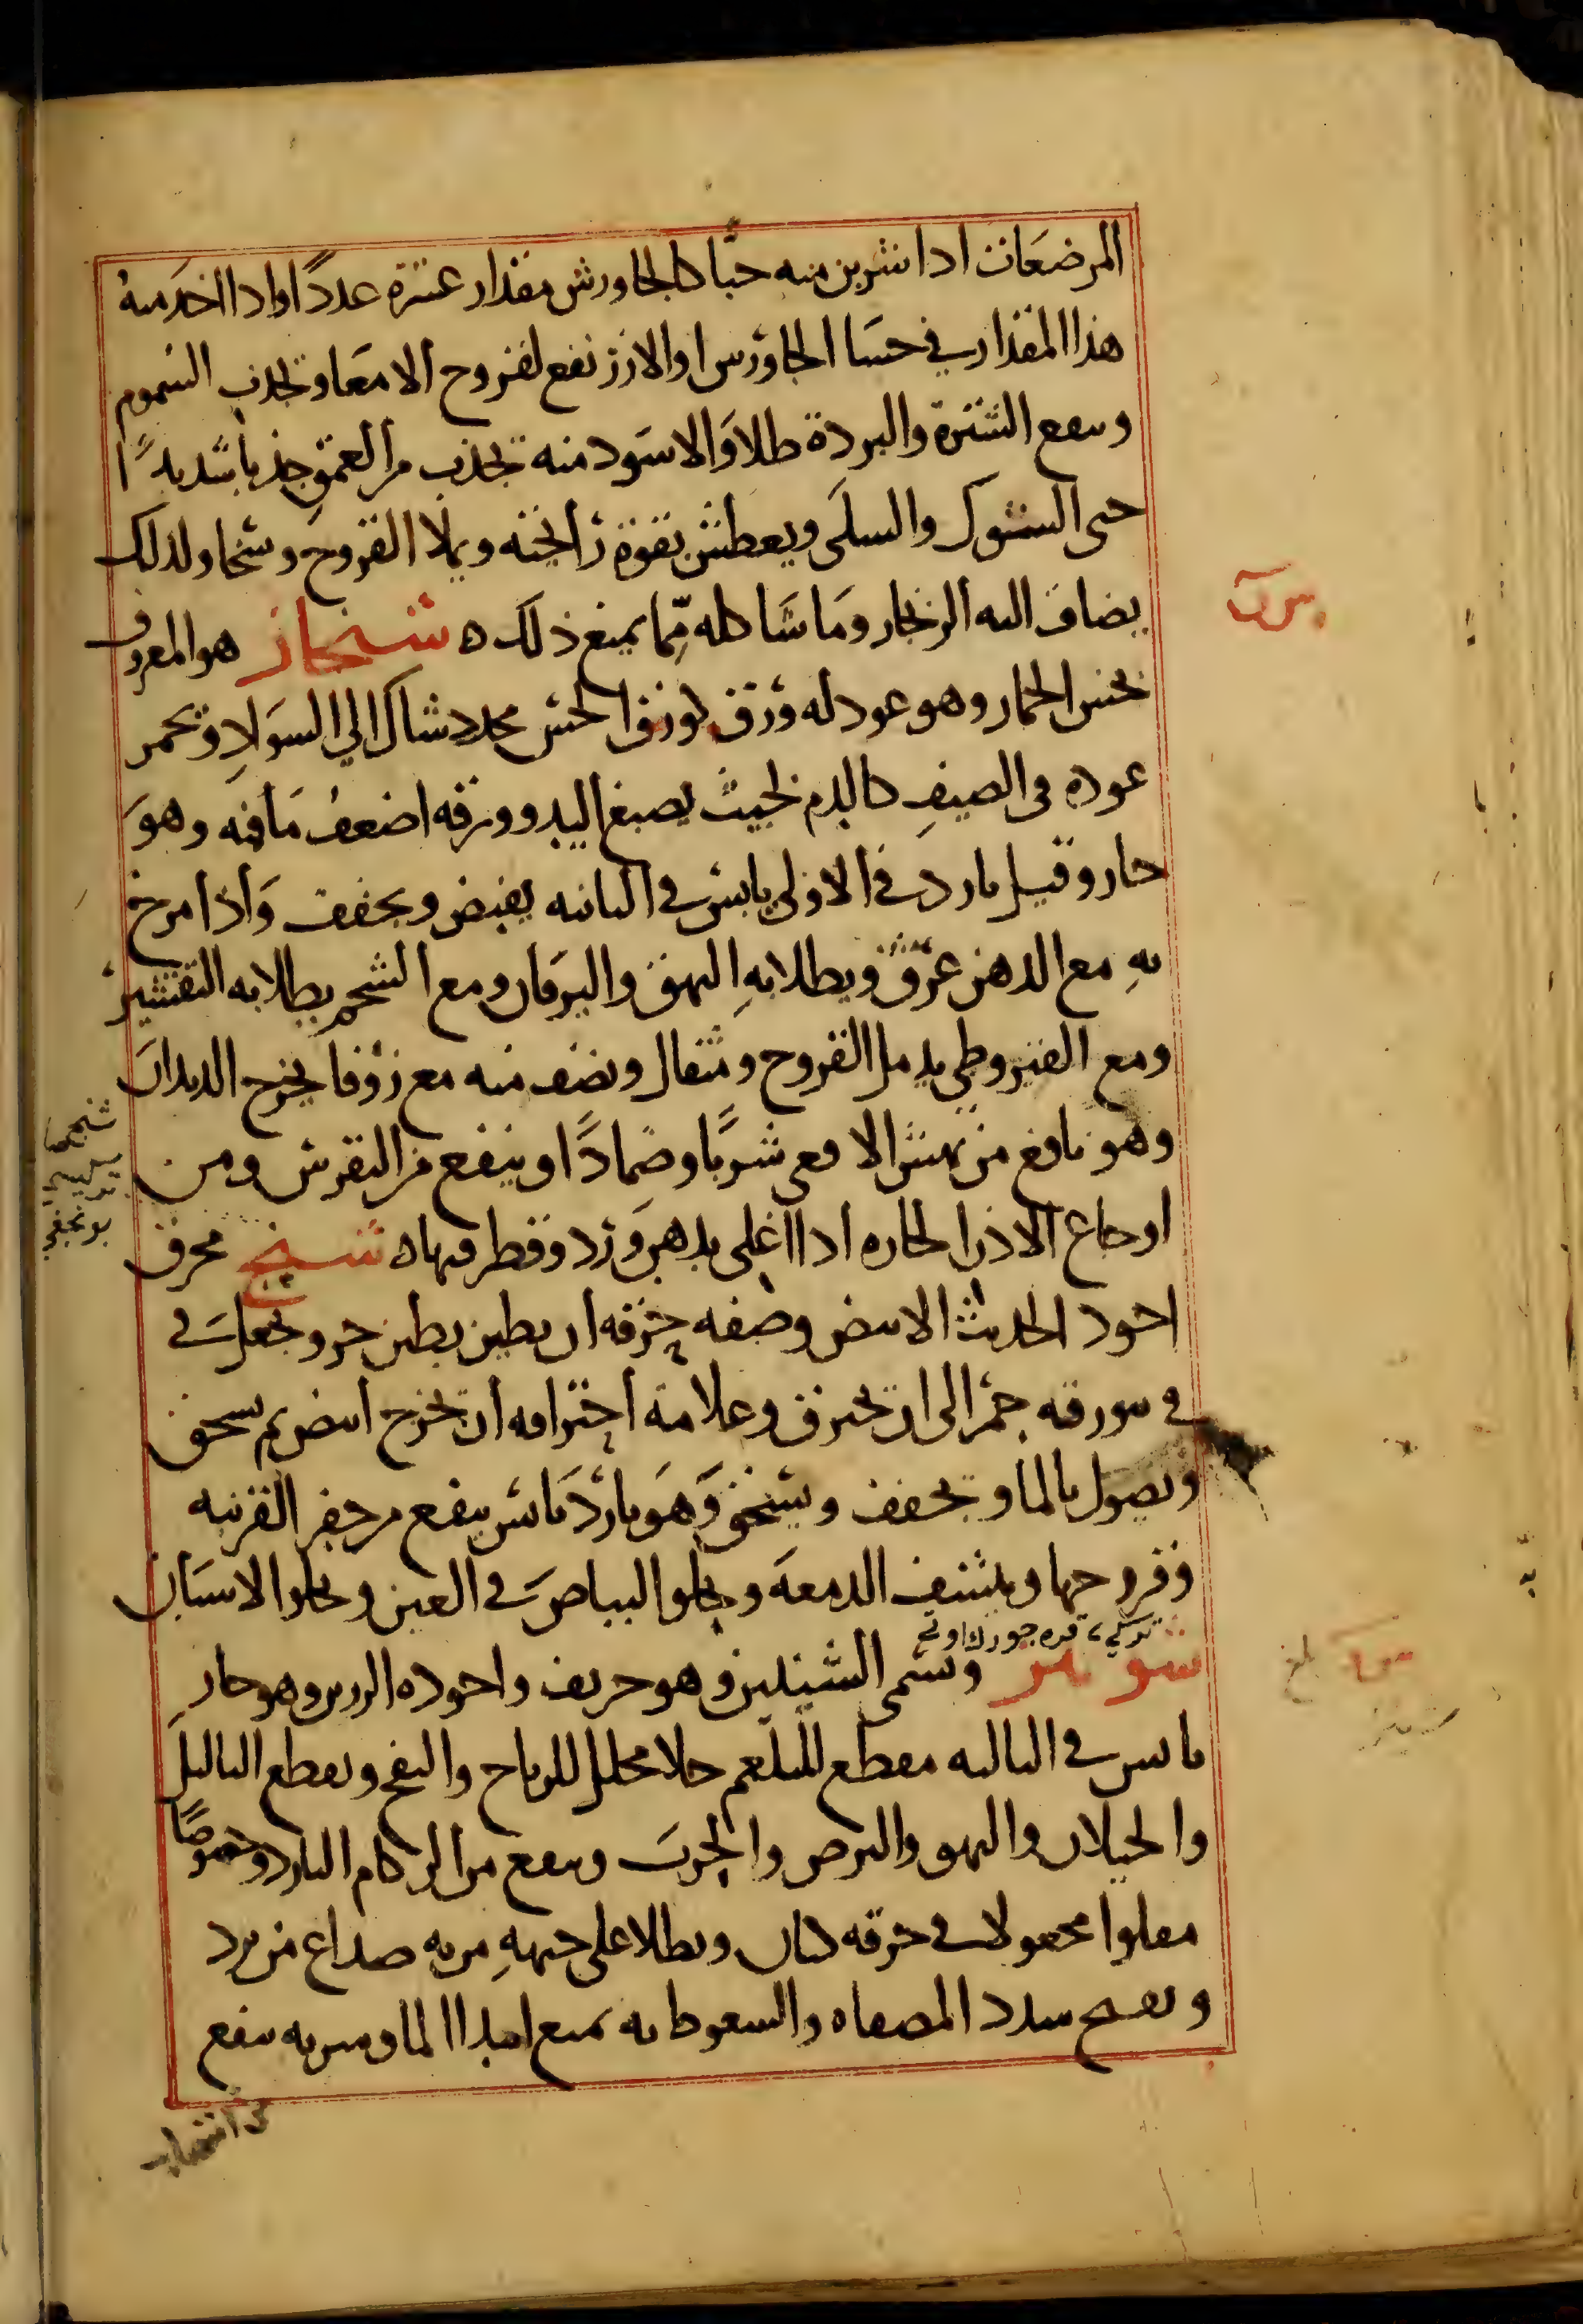 المرضعات اذا شربن منه حبًّا كالجاورش مقدار عشرة عددًا واذا اخذ منه
هذا المقدار في حسا الجاورس او الارز نفع لقروح الامعا وتجذب السموم
وينفع الشترة والبردة طلا والاسود منه تجذب من العمق جذبا شديدًا
حتى الشوك والسلى ويعطش بقوة رائحته ويملا القروح وسخا ولذلك
يضاف اليه الزنجار وما شاكله مما يمنع ذلك ه شنجار هو المعروف
بخس الحمار وهو عود له ورق كورق الخس محدد شاك الى السواد وتحمر
عوده في الصيف كالدم بحيث يصبغ اليد وورقه اضعف مافيه وهو
حار وقيل بارد في الاولى يابس في الثانيه يقبض ويجفف واذا مرخ
به مع الدهن عرّق ويطلا به البهق واليرقان ومع الشحم يطلا به التقشير
ومع القيروطي يدمل القروح ومثقال ونصف منه مع زوفا يخرج الديدان
وهو نافع من نهش الافعى شربًا وضمادًا وينفع من النقرس ومن
اوجاع الاذن الحاره اذا اغلي بدهن ورد وقطر فيها ه شنج محرق
اجود الحديث الابيض وصفه حرقه ان يطين بطين حر وتجعل في
في بورقه جمر الى ان تحترق وعلامة احتراقه ان تخرج ابيض ثم يسحق
ويصول بالما وتجفف ويسحق وهو بارد يابس ينفع من حفر القرنيه
وقروحها وينشف الدمعه ويجلو البياض في العين ويجلوا الاسنان
تركي قره جورك اوتي
شونيز ويسمى الشينيز وهو حريف واجوده الرزين وهو حار
يابس في الثالثه مقطع للبلغم جلا محلل للرياح والنفخ ويقطع الثاليل
والخيلان والبهق والبرص والجرب وينفع من الزكام البارد وخصوصًا
مقلوا مجعولا في خرقه كتان ويطلا على جبهة من به صداع من برد
ويفتح سدد المصفاه والسعوط به يمنع ابتدا الما وشربه ينفع
من انتصاب